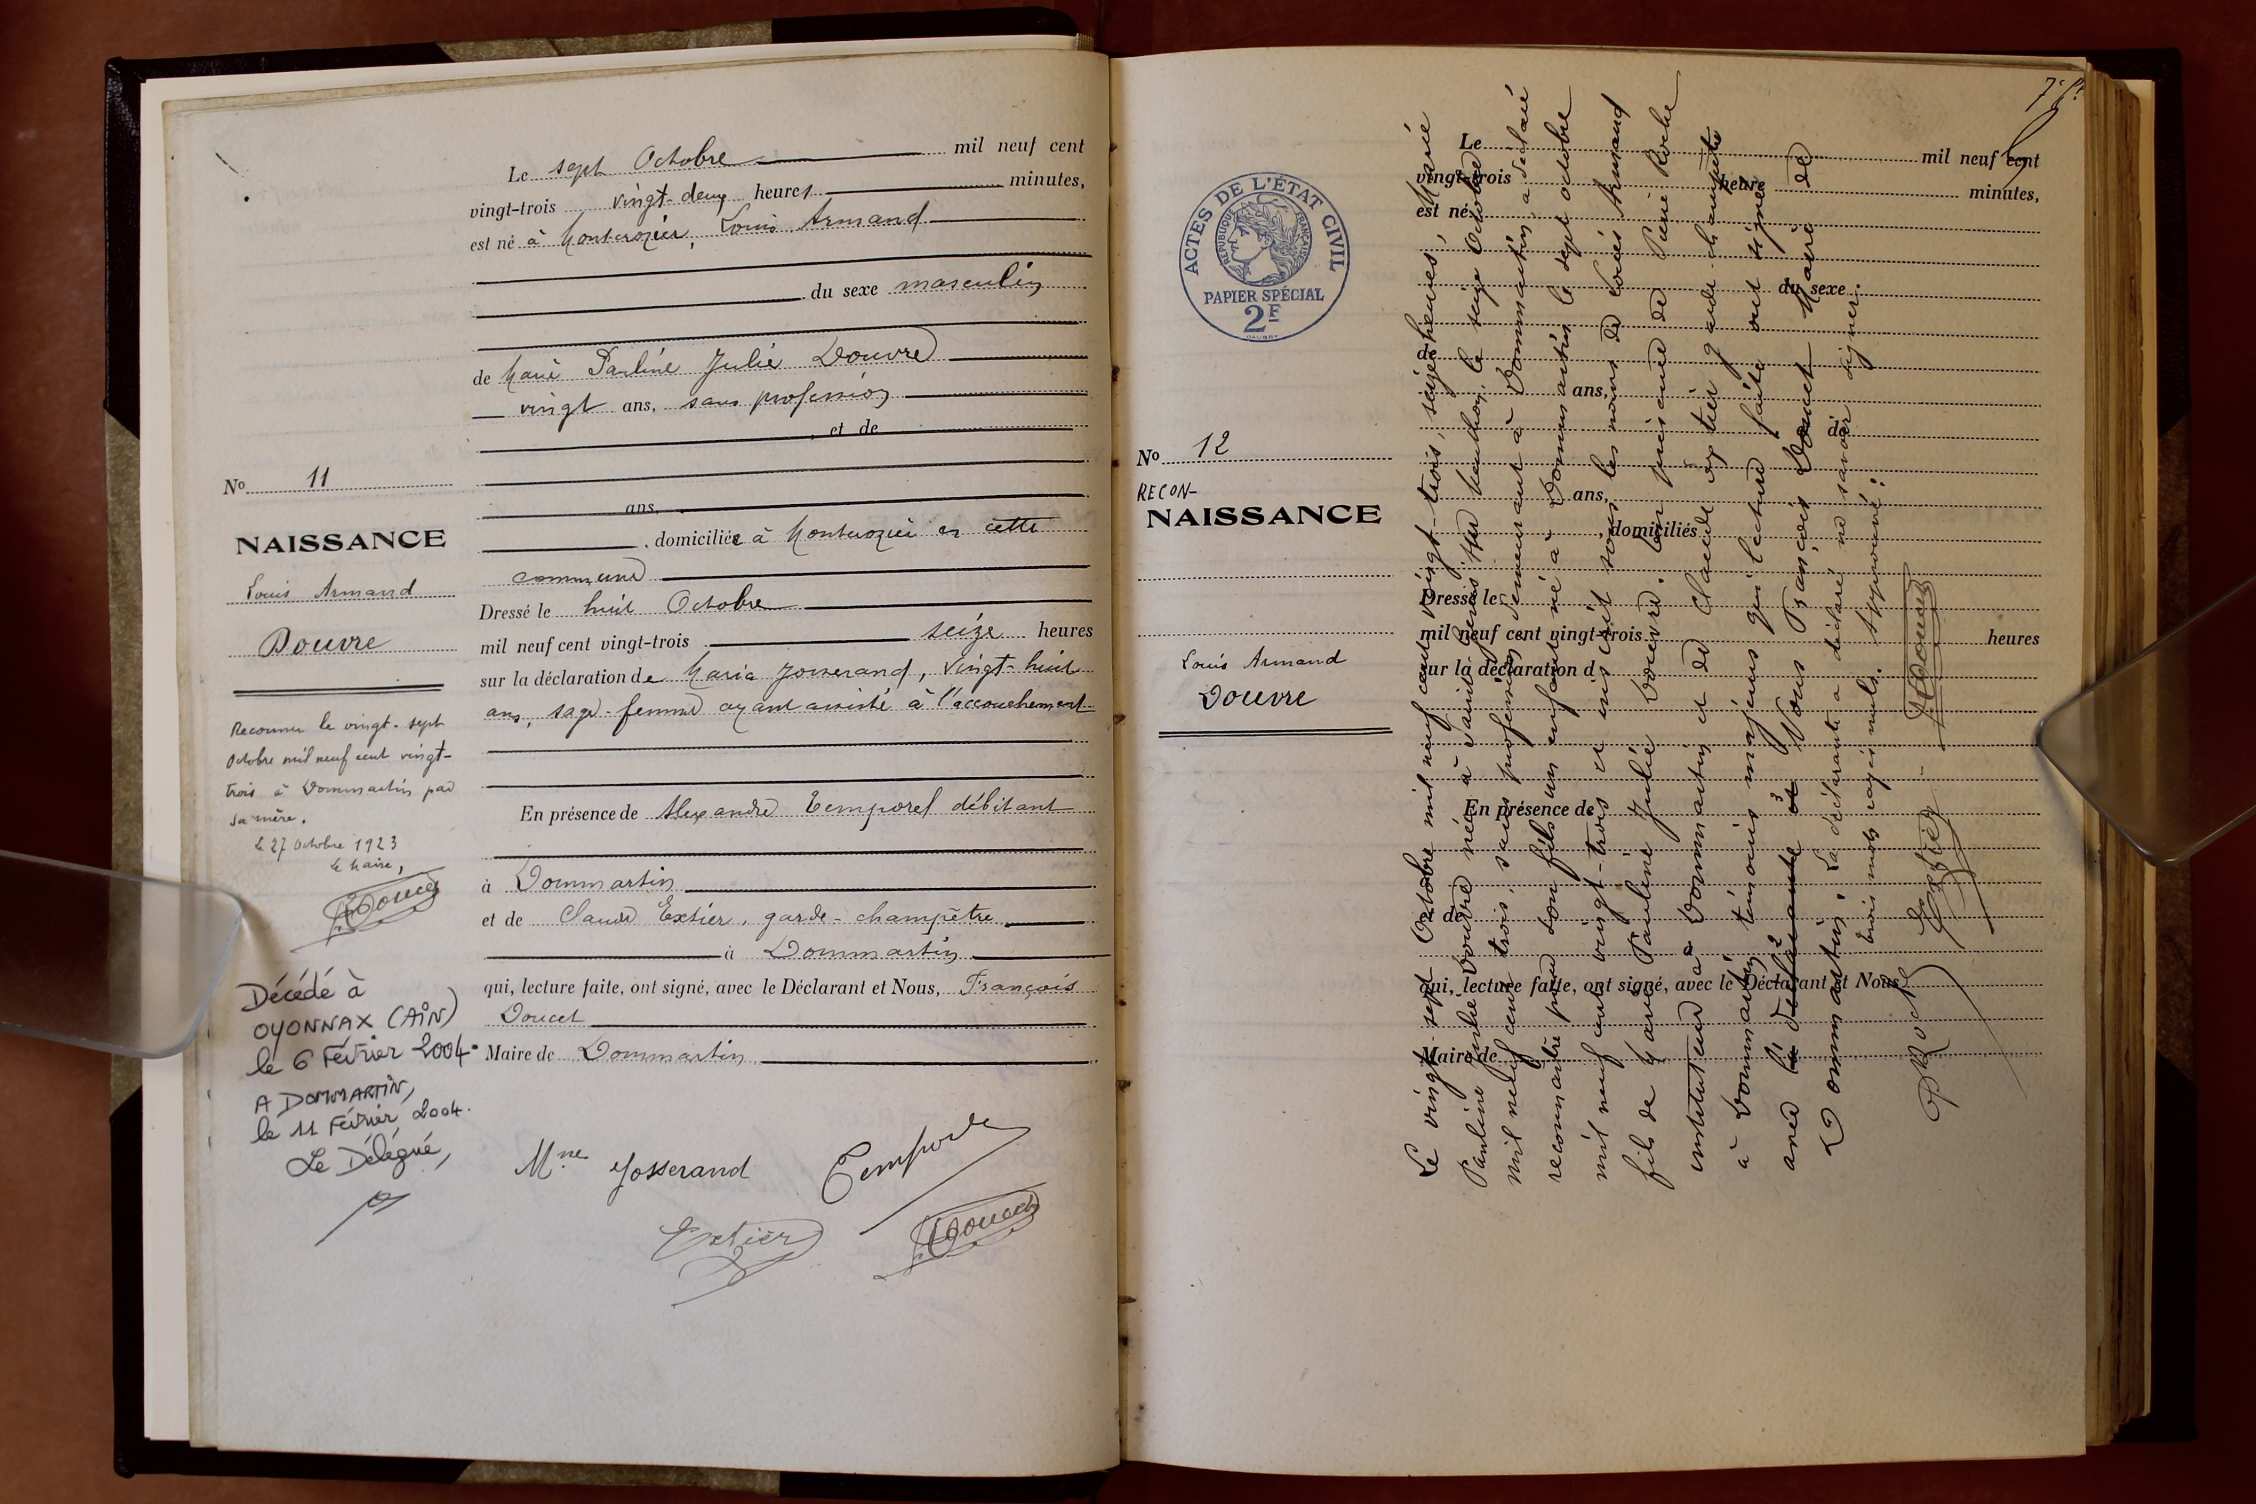 Le sept Octobre mil neuf cent
vingt-trois vingt-deux heures minutes,
est né à Montcrozier, Louis Armand
du sexe masculin
de Marie Pauline Julie Douvre
vingt ans, sans profession
, et de
ans,
, domiciliée à Montcrozier en cette
commune
Dressé le huit Octobre
mil neuf cent vingt-trois seize heures
sur la déclaration de Maria Josserand, vingt-huit
ans, sage-femme ayant assisté à l'accouchement
En présence de Alexandre Temporel débitant
à Dommartin
et de Claude Extier, garde-champêtre
à Dommartin
qui, lecture faite, ont signé, avec le Déclarant et Nous, François
Doucet
Maire de Dommartin
Mme Josserand Temporel
Extier Doucet
No 11
NAISSANCE
Louis Armand
Douvre
Reconnu le vingt-sept
Octobre mil neuf cent vingt-
trois à Dommartin par
sa mère.
le 27 Octobre 1923
le Maire,
Doucet
Décédé à
OYONNAX (AIN)
le 6 Février 2004.
A DOMMARTIN,
le 11 Février 2004.
Le Délégué,
7e
ACTES DE L'ÉTAT CIVIL
RÉPUBLIQUE FRANÇAISE
PAPIER SPÉCIAL
2F
No 12
RECON-
NAISSANCE
Louis Armand
Douvre
Le mil neuf cent
vingt-trois heure minutes,
est né
du sexe
de
ans,
de
ans,
, domiciliés
Dressé le
mil neuf cent vingt-trois heures
sur la déclaration d
En présence de
et de
qui, lecture faite, ont signé, avec le Déclarant et Nous
Maire de
Le vingt-sept Octobre mil neuf cent vingt-trois, seize heures, Marie
Pauline Julie Douvre née à Saint Genis sur Menthon le seize Octobre
mil neuf cent trois, sans profession demeurant à Dommartin a déclaré
reconnaître pour son fils un enfant né à Dommartin le sept octobre
mil neuf cent vingt-trois et inscrit sous les noms de Louis Armand
fils de Marie Pauline Julie Douvre. En présence de Pierre Roche
instituteur à Dommartin et de Claude Extier garde-champêtre
à Dommartin témoins majeurs qui lecture faite ont signé
avec la déclarante et Nous François Doucet Maire de
Dommartin. La déclarante a déclaré ne savoir signer.
trois mots rayés nuls. Approuvé:
P. Roche Extier Doucet